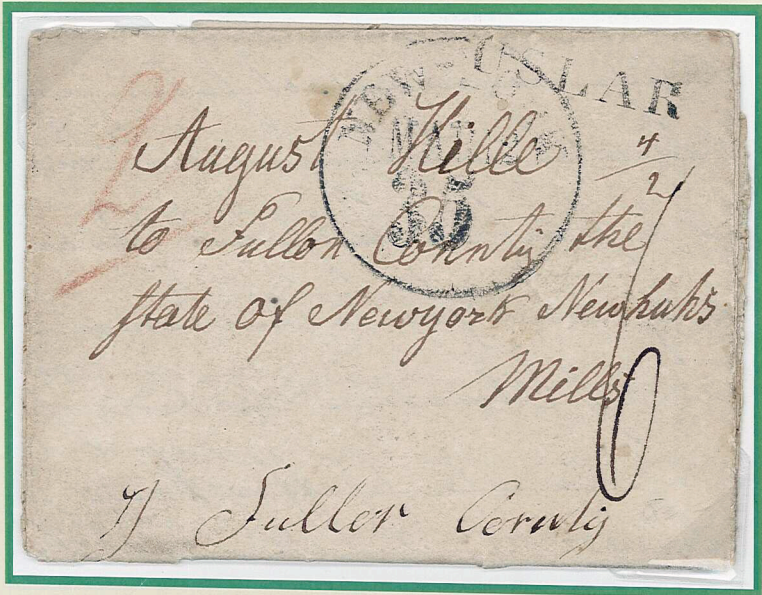 USLAR
NEW-YORK
MAR
25
2
August Hille
4/2
to Fullon Connty the
state of Newyork Newkuhs
Mills
Fuller Cornty